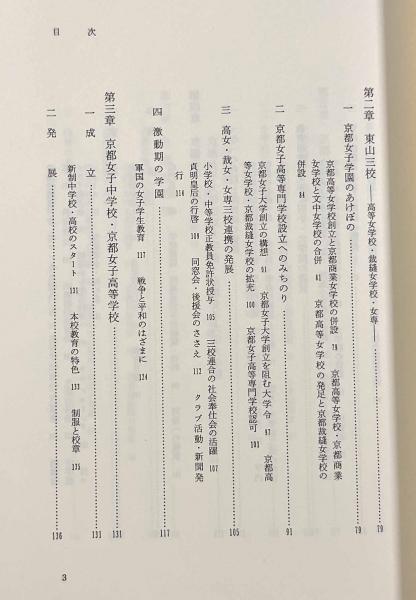 目次
第二章 東山三校 ──高等女学校・裁縫女学校・女専── ……79
一 京都女子学園のあけぼの……79
京都高等女学校創立と京都商業女学校の併設 79 京都高等女学校・京都商業
女学校と文中女学校の合併 81 京都高等女学校の発足と京都裁縫女学校の
併設 84
二 京都女子高等専門学校設立へのみちのり……91
京都女子大学創立の構想 91 京都女子大学創立を阻む大学令 97 京都高
等女学校・京都裁縫女学校の拡充 100 京都女子高等専門学校認可 101
三 高女・裁女・女専三校連携の発展……105
小学校・中等学校正教員免許状授与 105 三校連合の社会奉仕会の活躍 107
貞明皇后の行啓 109 同窓会・後援会のささえ 112 クラブ活動・新聞発
行 114
四 激動期の学園……117
軍国の女子学生教育 117 戦争と平和のはざまに 124
第三章 京都女子中学校・京都女子高等学校……131
一 成立……131
新制中学校・高校のスタート 131 本校教育の特色 133 制服と校章 135
二 発展……136
3